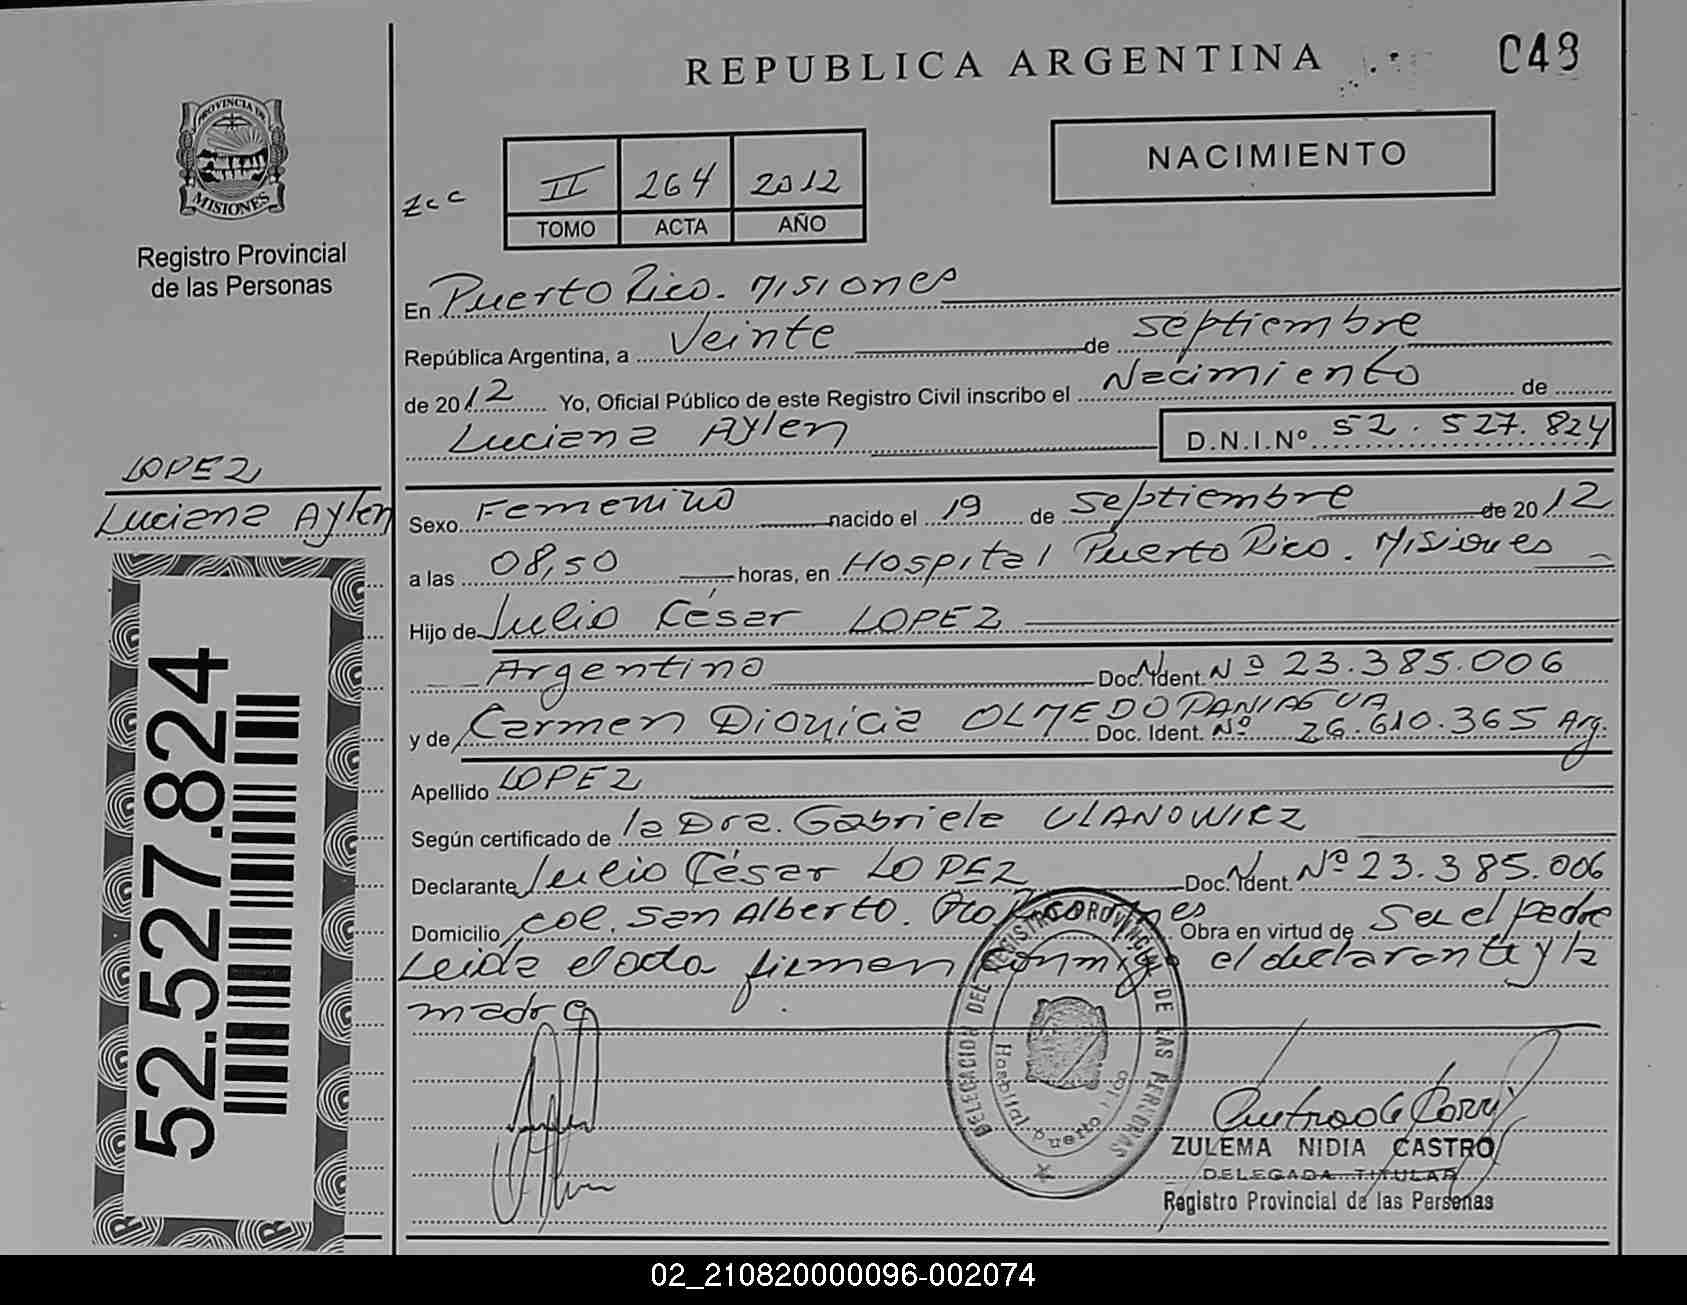 REPUBLICA ARGENTINA
C49
PROVINCIA DE
MISIONES
Registro Provincial
de las Personas
NACIMIENTO
II 264 2012
TOMO ACTA AÑO
En Puerto Rico. Misiones
República Argentina, a Veinte de septiembre
de 2012 Yo, Oficial Público de este Registro Civil inscribo el Nacimiento de
Luciana Aylen D.N.I.Nº 52.527.824
LOPEZ
Luciana Aylen
Sexo Femenino nacido el 19 de septiembre de 2012
a las 08,50 horas, en Hospital Puerto Rico. Misiones
Hijo de Julio César LOPEZ
Argentino Doc. Ident. Nº 23.385.006
y de Carmen Dionicia OLMEDO PANIAGUA
Doc. Ident. Nº 26.610.365 Arg.
Apellido LOPEZ
Según certificado de la Dra. Gabriela ULANOWIEZ
Declarante Julio César LOPEZ Doc. Ident. Nº 23.385.006
Domicilio col. San Alberto. Pto Rico Obra en virtud de Ser el padre
Leida el acta firman conmigo el declarante y la
madre
52.527.824
DELEGACION DEL REGISTRO PROVINCIAL DE LAS PERSONAS
Hospital Puerto Rico
ZULEMA NIDIA CASTRO
DELEGADA TITULAR
Registro Provincial de las Personas
02_210820000096-002074